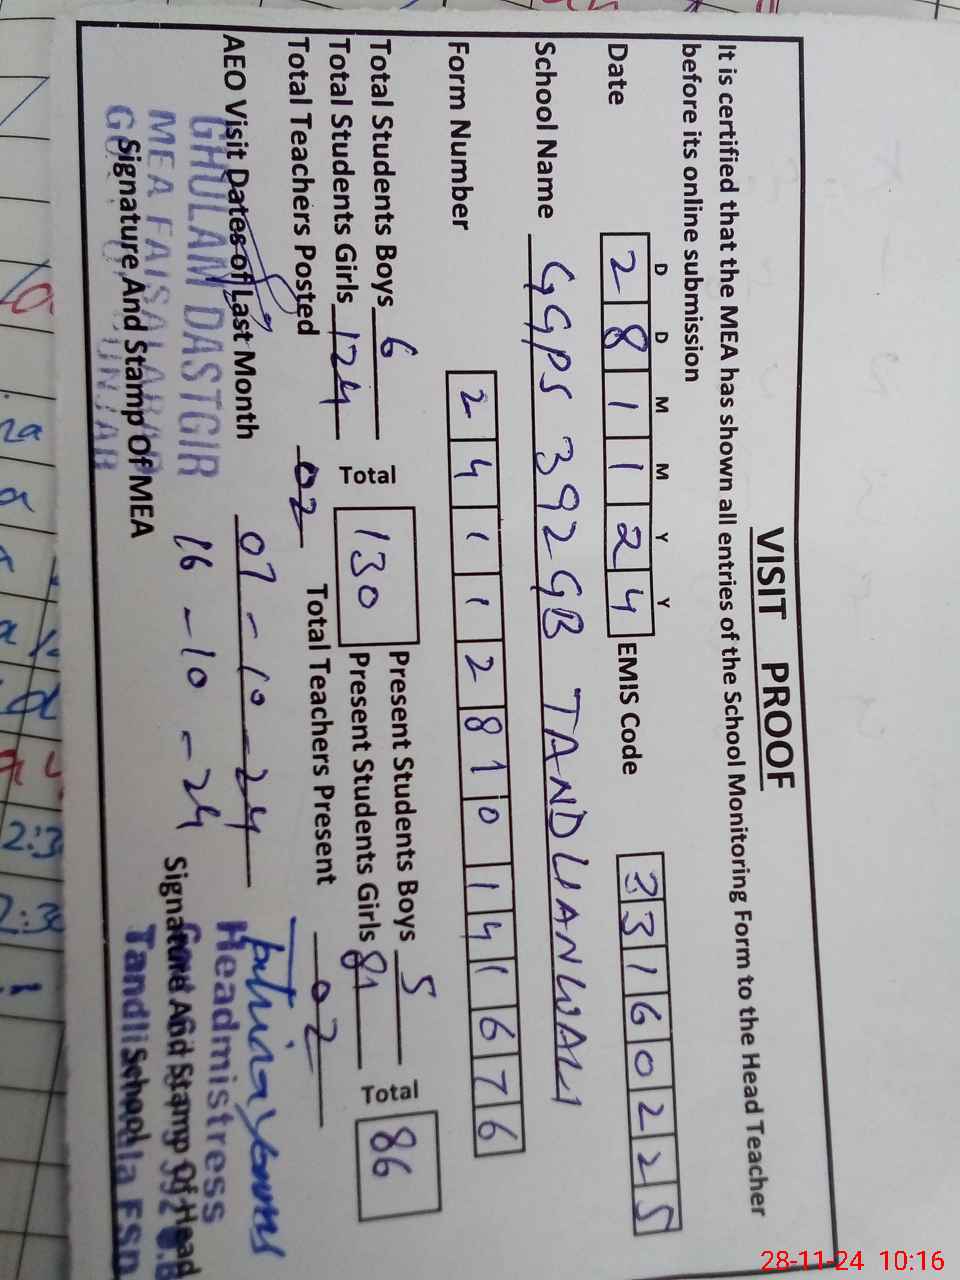 VISIT PROOF
It is certified that the MEA has shown all entries of the School Monitoring Form to the Head Teacher
before its online submission
D D M M Y Y
Date 2 8 1 1 2 4 EMIS Code 3 3 1 6 0 2 2 5
School Name GGPS 392 GB TANDLIANWALI
Form Number 2 4 1 1 2 8 1 0 1 4 1 6 7 6
Total Students Boys 6 Total 130 Present Students Boys 5 Total 86
Total Students Girls 124 Present Students Girls 81
Total Teachers Posted 02 Total Teachers Present 02
AEO Visit Dates of Last Month 07-10-24
16-10-24
GHULAM DASTGIR
MEA FAISALABAD
Signature And Stamp Of MEA
Headmistress
Signature And Stamp Of Head
School
28-11-24 10:16